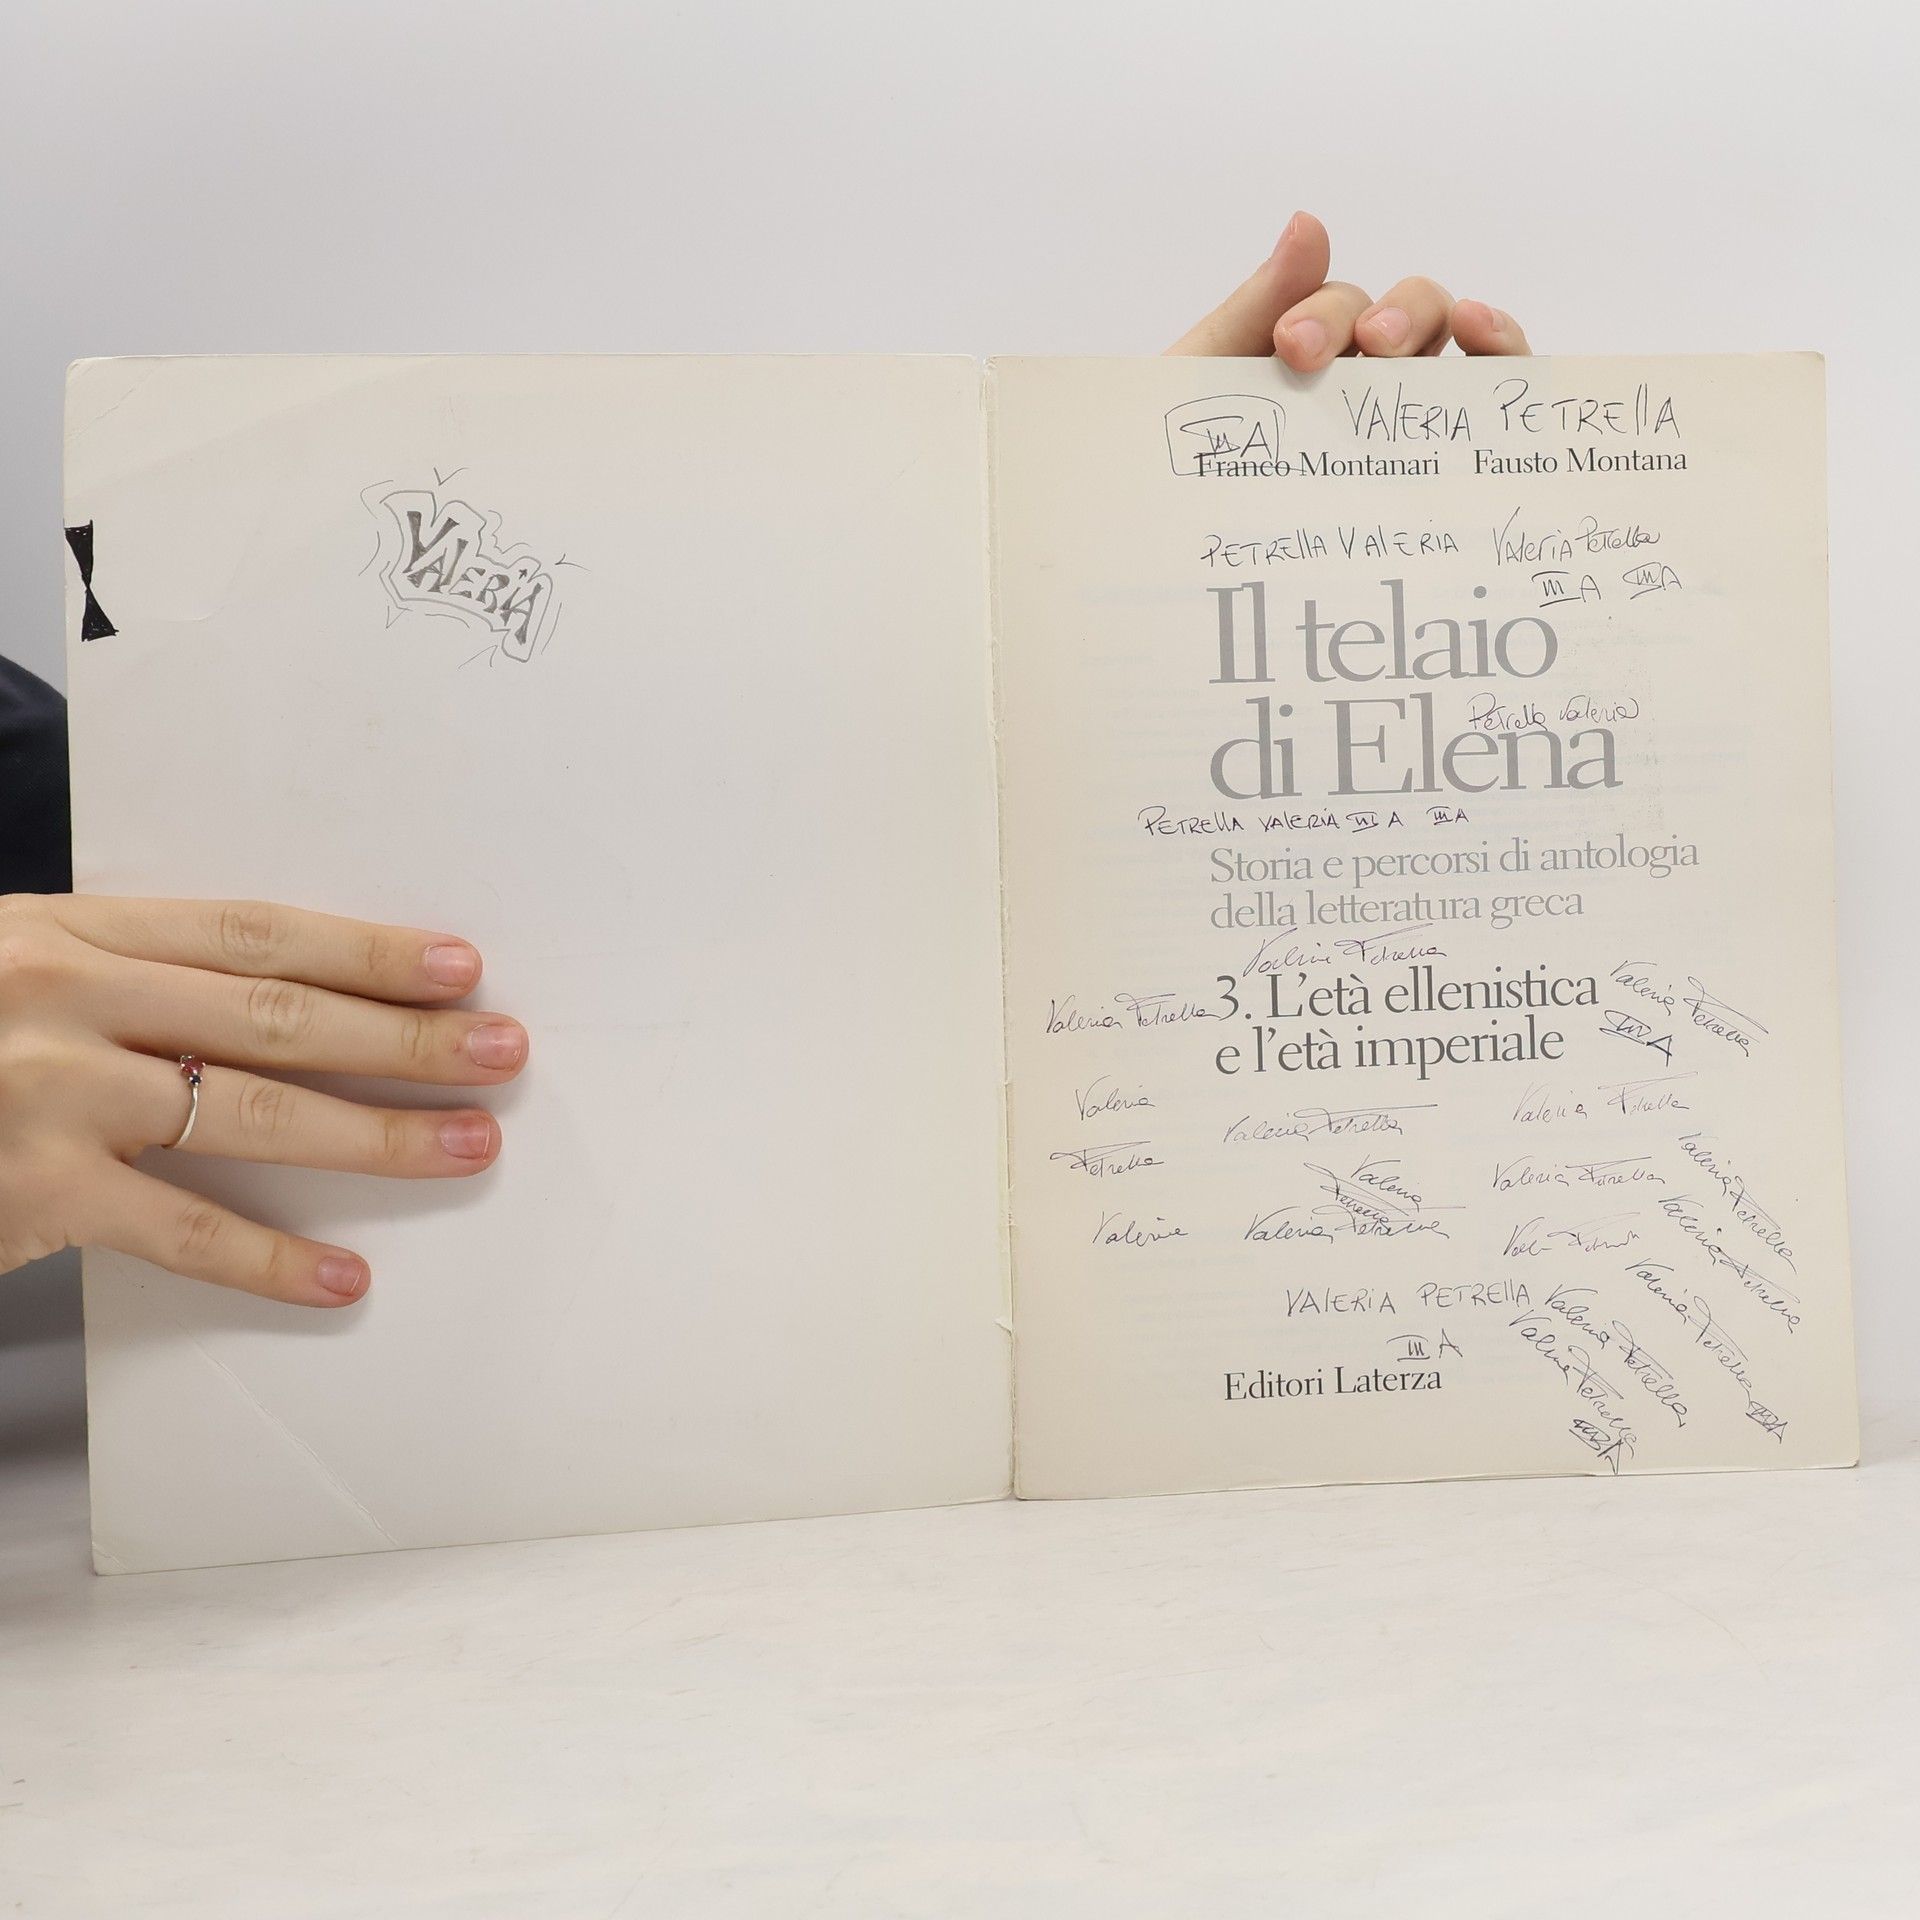 VALERIA
III A VALERIA PETRELLA
Franco Montanari Fausto Montana
PETRELLA VALERIA Valeria Petrella
III A III A
Il telaio
di Elena
Petrella Valeria
PETRELLA VALERIA III A III A
Storia e percorsi di antologia
della letteratura greca
Valeria Petrella
3. L'età ellenistica
e l'età imperiale
Valeria Petrella
Valeria Petrella
III A
Valeria
Petrella
Valeria
Valeria Petrella
Valeria Petrella
Valeria Petrella
Valeria Petrella
Valeria Petrella
Valeria Petrella
Valeria Petrella
Valeria Petrella III A
VALERIA PETRELLA
III A
Valeria Petrella
Valeria Petrella
III A
Editori Laterza